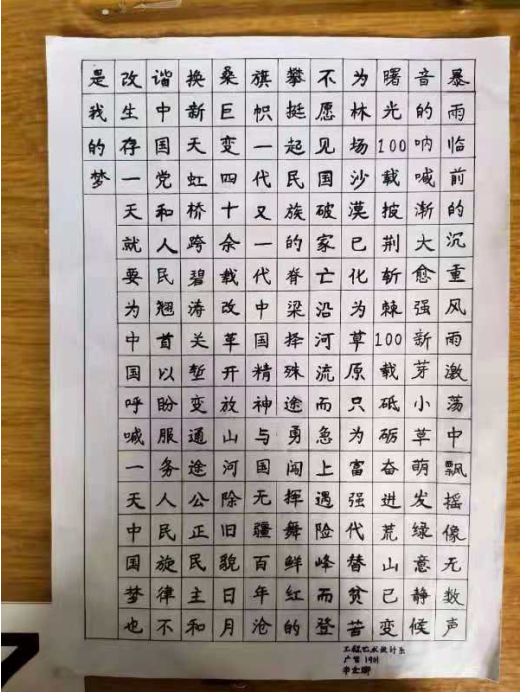 暴雨临前的沉重风雨激荡中飘摇像无数声
音的呐喊渐大愈强新芽小草萌发绿意静候
曙光100载披荆斩棘100载砥砺奋进荒山已变
为林场沙漠已化为草原只为富强代替贫苦
不愿见国破家亡沿河流而急上遇险峰而登
攀挺起民族的脊梁择殊途勇闯挥舞鲜红的
旗帜一代又一代中国精神与国无疆百年沧
桑巨变四十余载改革开放山河除旧貌日月
换新天虹桥跨碧涛关堑变通途公正民主和
谐中国党和人民翘首以盼服务人民旋律不
改生存一天就要为中国呼喊一天中国梦也
是我的梦
工程艺术设计系